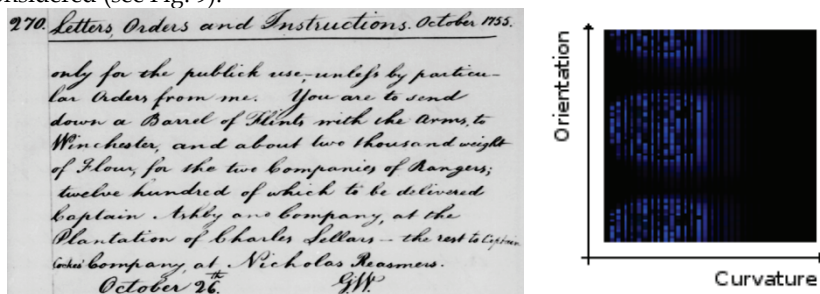 onsidered (see Fig. 9).
270. Letters, Orders and Instructions. October 1755.
only for the publick use, unless by particu-
lar Orders from me. You are to send
down a Barrel of Flints with the Arms, to
Winchester, and about two thousand weight
of Flour, for the two Companies of Rangers;
twelve hundred of which to be delivered
Captain Ashby and Company, at the
Plantation of Charles Sellars - the rest to Captain
Cockes Company, at Nicholas Reasmers.
October 26th. G.W.
Orientation
Curvature